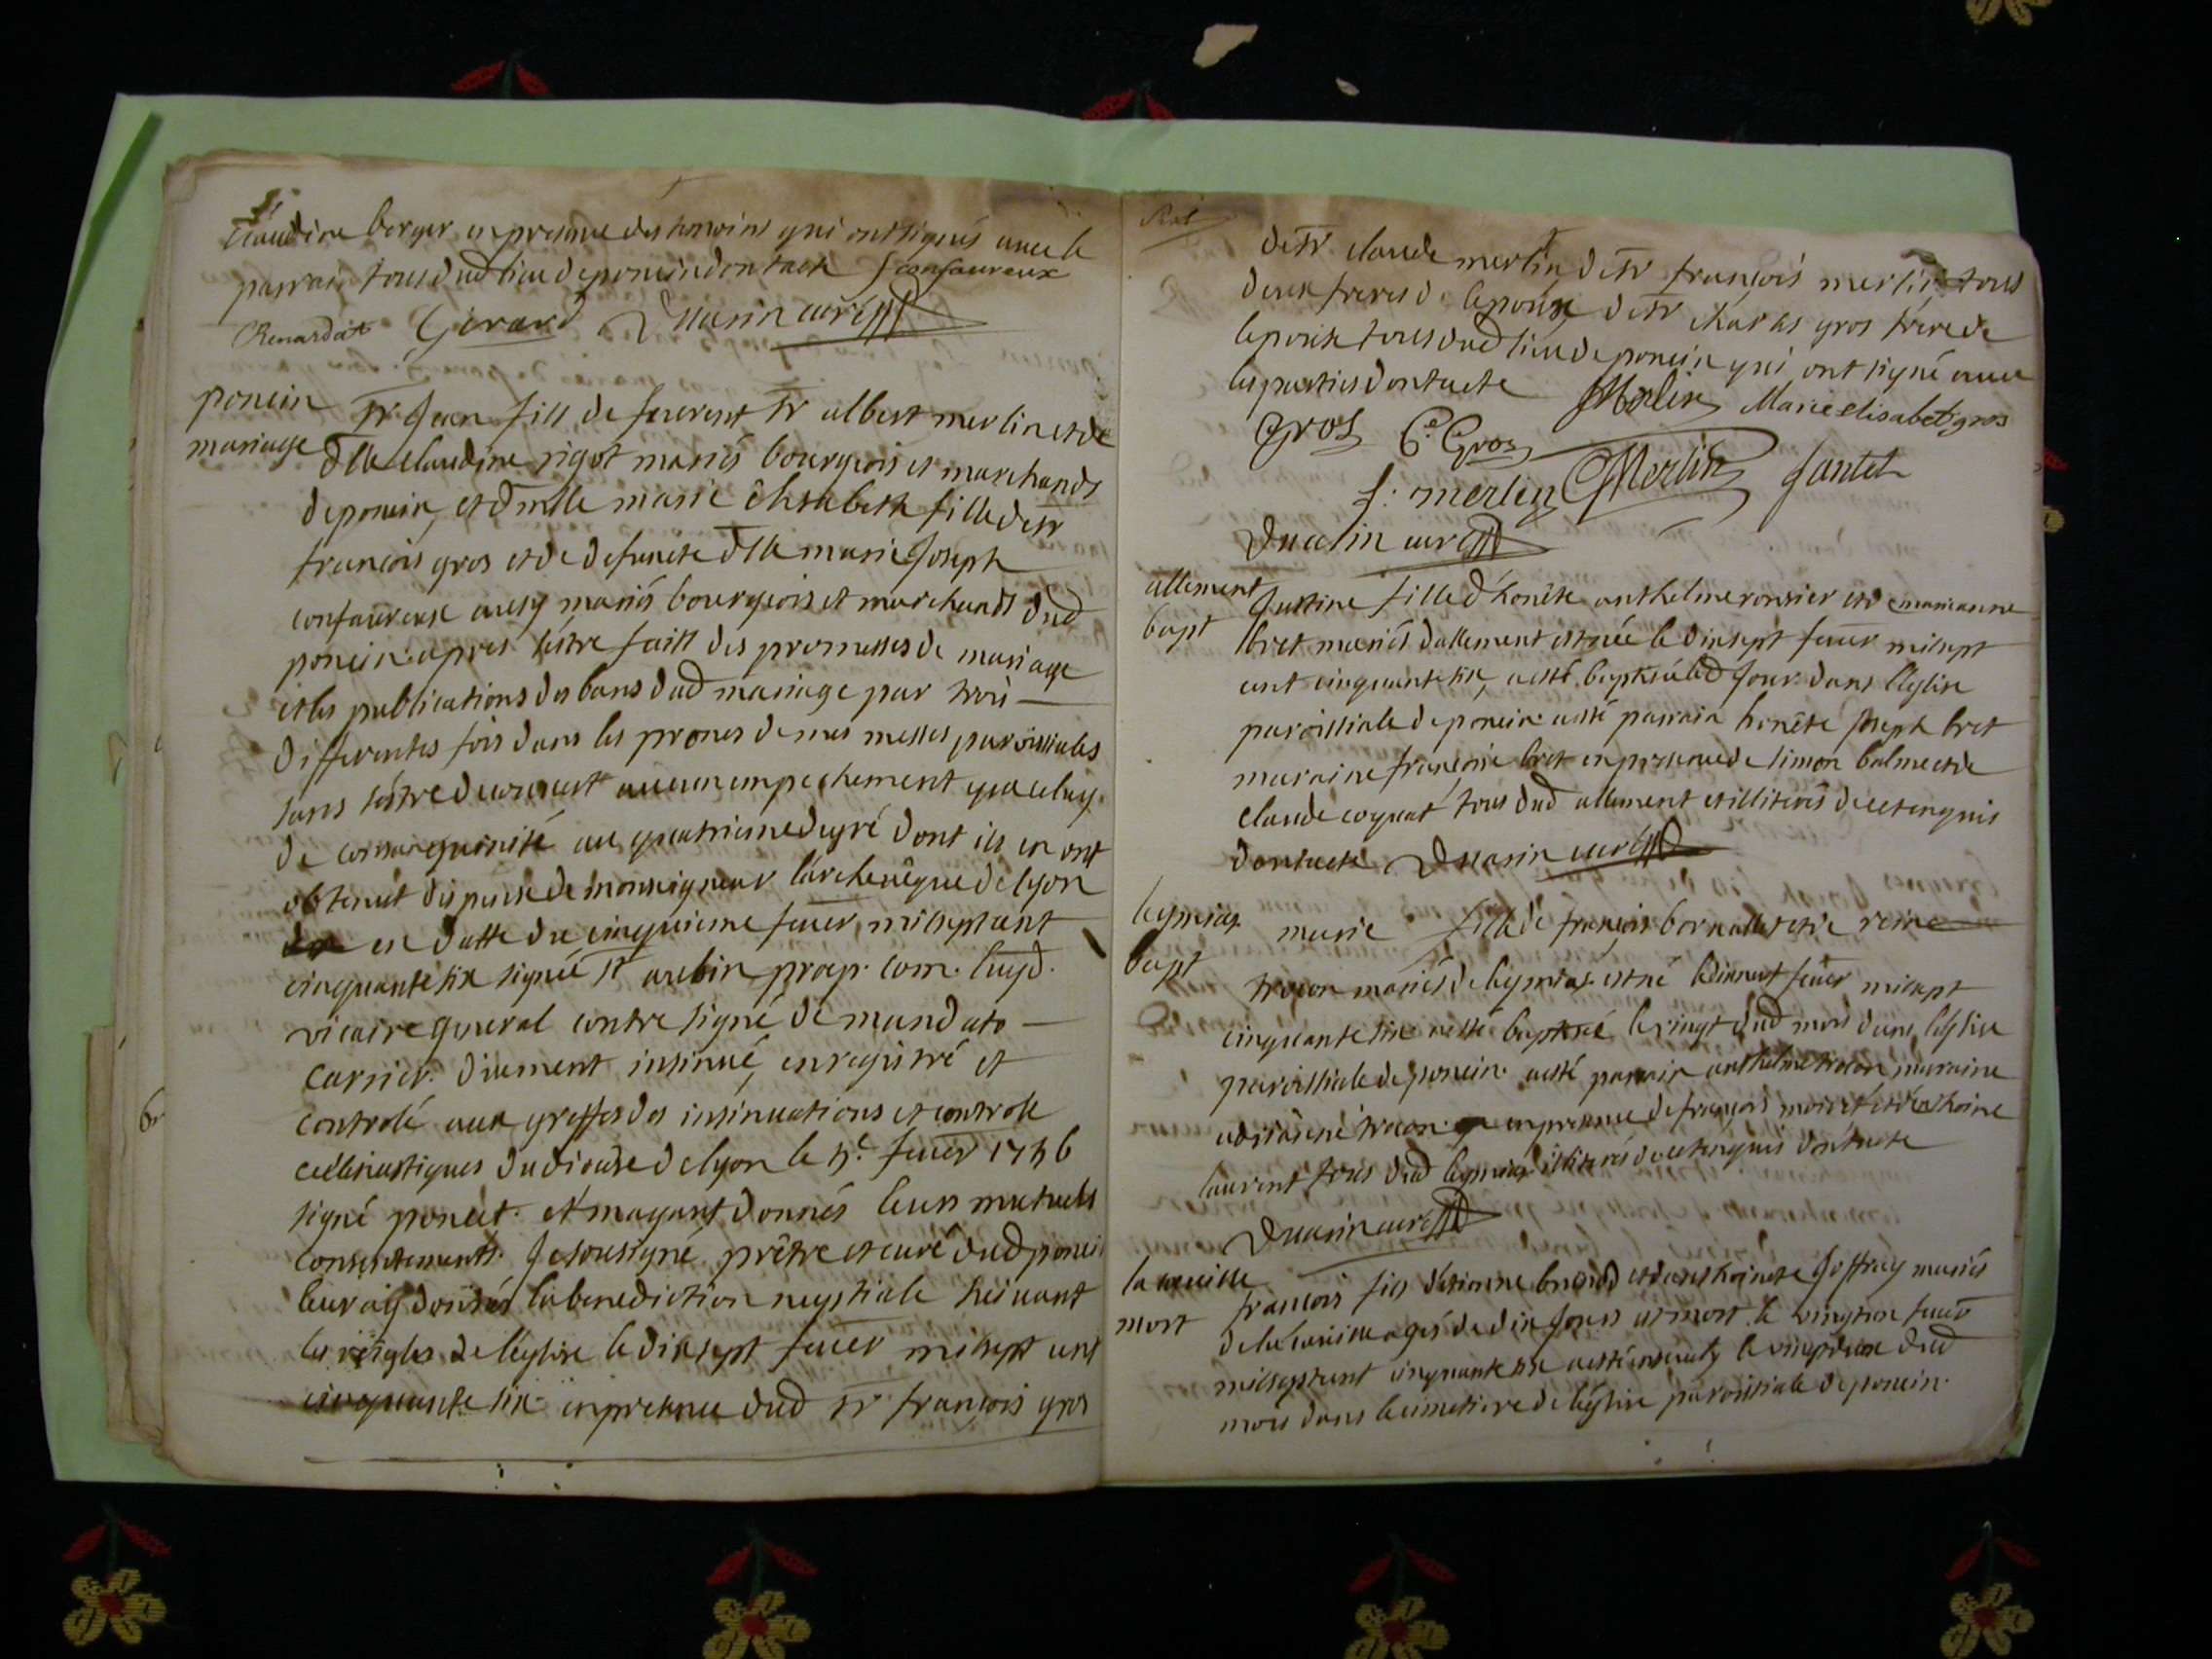 Claudine berger en presence des temoins qui ont signés avec le
parrain tous dud lieu de poncin dont acte J confavreux
Renardat Gerard Duasin curé
poncin
mariage
Sr Jean fils de feu Sr albert merlin et de
dlle Claudine rigot mariés bourgeois et marchands
de poncin, et dmlle marie Elisabeth fille de Sr
francois gros et de defuncte dlle marie Joseph
confavreux aussy mariés bourgeois et marchands dud
poncin apres s'estre faitt des promesses de mariage
et les publications des bans dud mariage par trois
differentes fois dans les prones de mes messes paroissiales
sans s'estre decouvert aucun empechement que celuy
de consanguinité au quatrieme degré dont ils en ont
obtenut dispense de monseigneur l'archevêque de lyon
en datte du cinquieme fevr milseptcent
cinquante six signée vicaire general contre signé de mandato
Carrier. duement insinué, enregistré et
controlé aux greffes des insinuations et controlle
ecclesiastiques du diocese de lyon le 5e. fevier 1756
signé poncet. et m'ayant donnés leurs mutuels
consentements. Je soussigné prêtre et curé dud poncin
leur ay donnés la benediction nuptiale suivant
les reigles de l'eglise le dixsept fevier milsept cent
cinquante six en presence dud sr francois gros
de Sr claude merlin, de Sr françois merlin tous
deux freres de l'epoux, de Sr charles gros frere de
l'epouse tous dud lieu de poncin qui ont signé avec
les parties dont acte JMerlin Marie elisabet gros
Gros C. Gros
f. merlin CMerlin Jantet
Duasin curé
allement
bapt
Justine fille d'honête anthelme ronsier et de marianne
bret mariés d'allement est née le dixsept fevr milsept
cent cinquante six, a esté baptisée led jour dans l'eglise
paroissiale de poncin a esté parrain honête Joseph bret
maraine françoise bret en presence de simon balme et de
claude coquat tous dud allement et illiterés de ce enquis
dont acte Duasin curé
leymiat
bapt
marie fille de françois bornallet et de reine
trocon mariés de leymiat est né le dixneuf fevr milsept
cinquante six a esté baptisé le vingt dud mois dans l'eglise
paroissiale de poncin a esté parrain anthelme trocon maraine
trocon en presence de françois moiret et d'anthoine
laurent tous dud leymiat illiterés de ce enquis dont acte
Duasin curé
la cueille
mort
francois fils d'etienne briand et d'anthoinete Joffray mariés
de la cueille agés de dix jours est mort le vingtun fevr
milseptcent cinquante six a esté ensevely le vingtdeux dud
mois dans le cimetiere de l'eglise paroissiale de poncin.